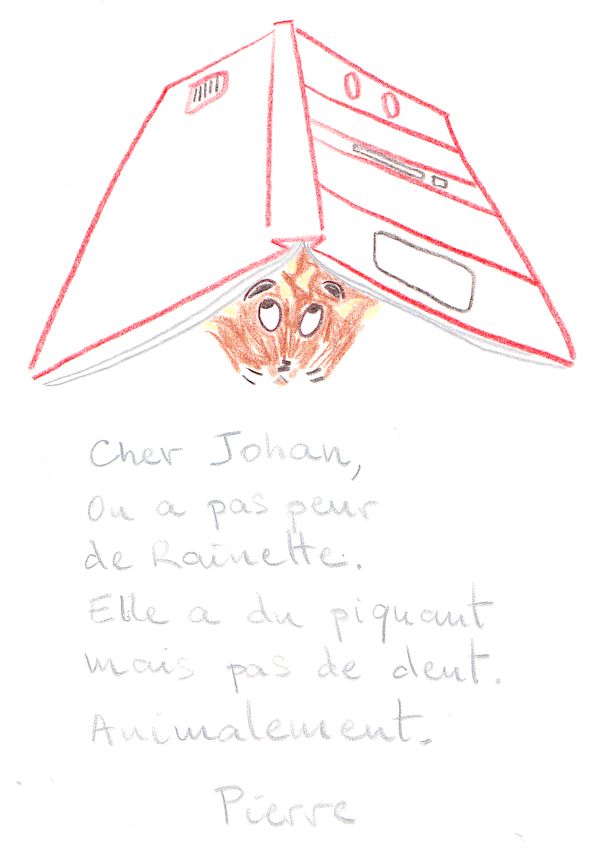 Cher Johan,
On a pas peur
de Rainette.
Elle a du piquant
mais pas de dent.
Animalement.
Pierre